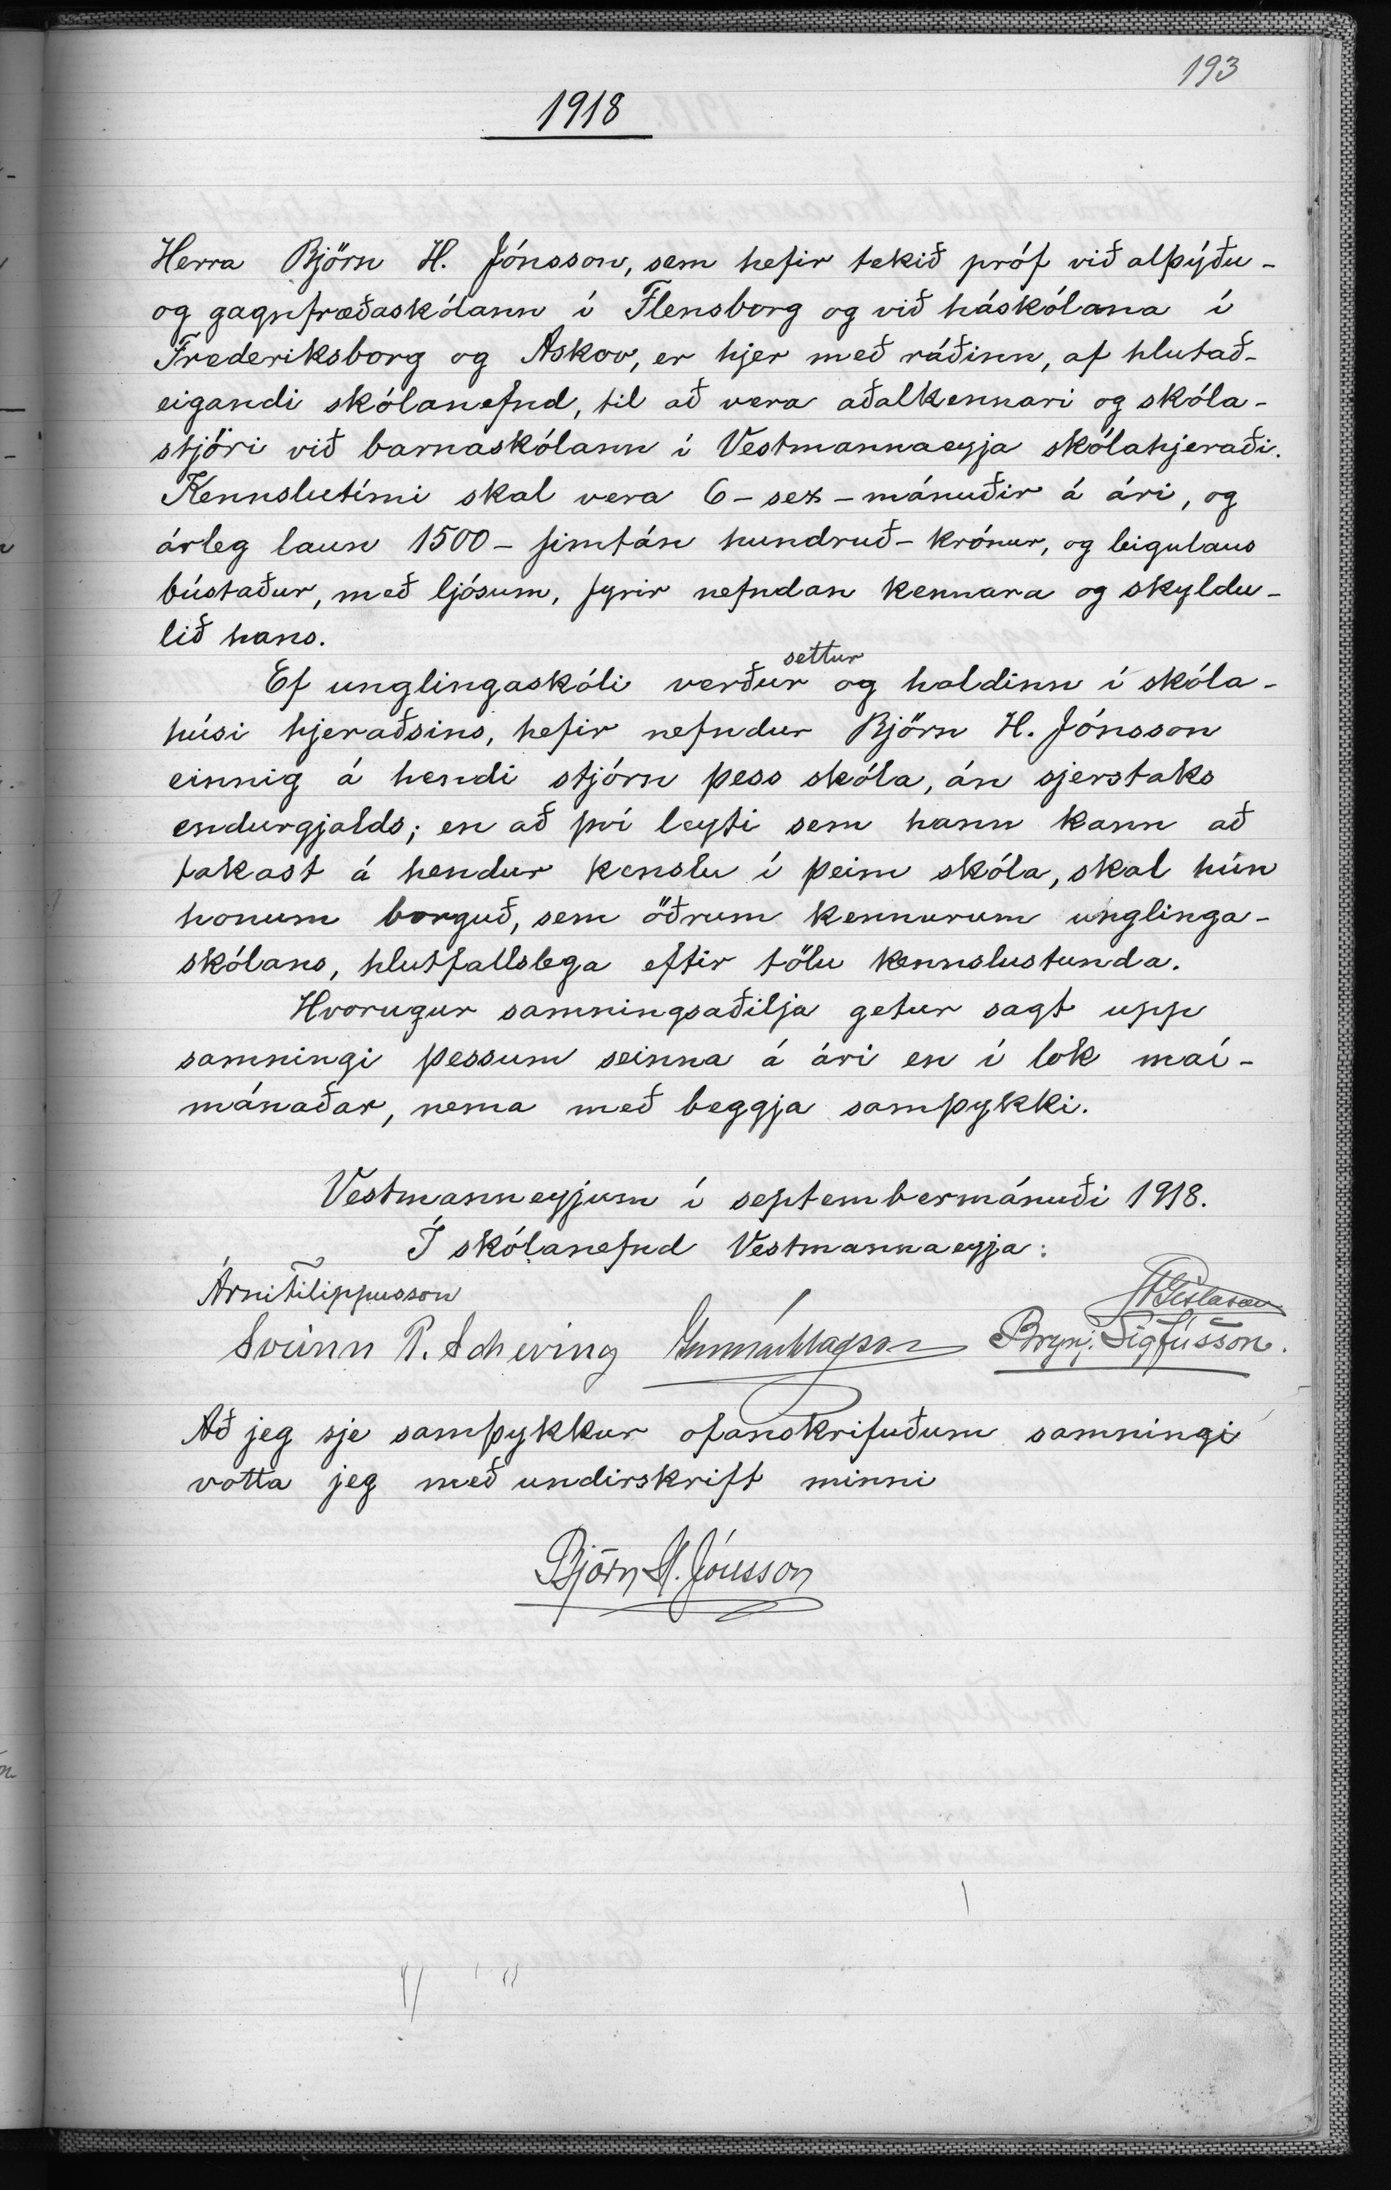 193
1918
Herra Björn H. Jónsson, sem hefir tekið próf við alþýðu-
og gagnfræðaskólann í Flensborg og við háskólana í
Frederiksborg og Askov, er hjer með ráðinn, af hlutað-
eigandi skólanefnd, til að vera aðalkennari og skóla-
stjóri við barnaskólann í Vestmannaeyja skólahjeraði.
Kennslutími skal vera 6 - sex - mánuðir á ári, og
árleg laun 1500 - fimtán hundruð - krónur, og leigulaus
bústaður, með ljósum, fyrir nefndan kennara og skyldu-
lið hans.
Ef unglingaskóli verður settur og haldinn í skóla-
húsi hjeraðsins, hefir nefndur Björn H. Jónsson
einnig á hendi stjórn þess skóla, án sjerstaks
endurgjalds; en að því leyti sem hann kann að
takast á hendur kenslu í þeim skóla, skal hún
honum borguð, sem öðrum kennurum unglinga-
skólans, hlutfallslega eftir tölu kennslustunda.
Hvorugur samningsaðilja getur sagt upp
samningi þessum seinna á ári en í lok maí-
mánaðar, nema með beggja samþykki.
Vestmanneyjum í septembermánuði 1918.
Í skólanefnd Vestmannaeyja:
Árni Filippusson
Gíslason
Sveinn P. Scheving Brynj. Sigfússon.
Að jeg sje samþykkur ofanskrifuðum samningi
votta jeg með undirskrift minni
Björn H. Jónsson